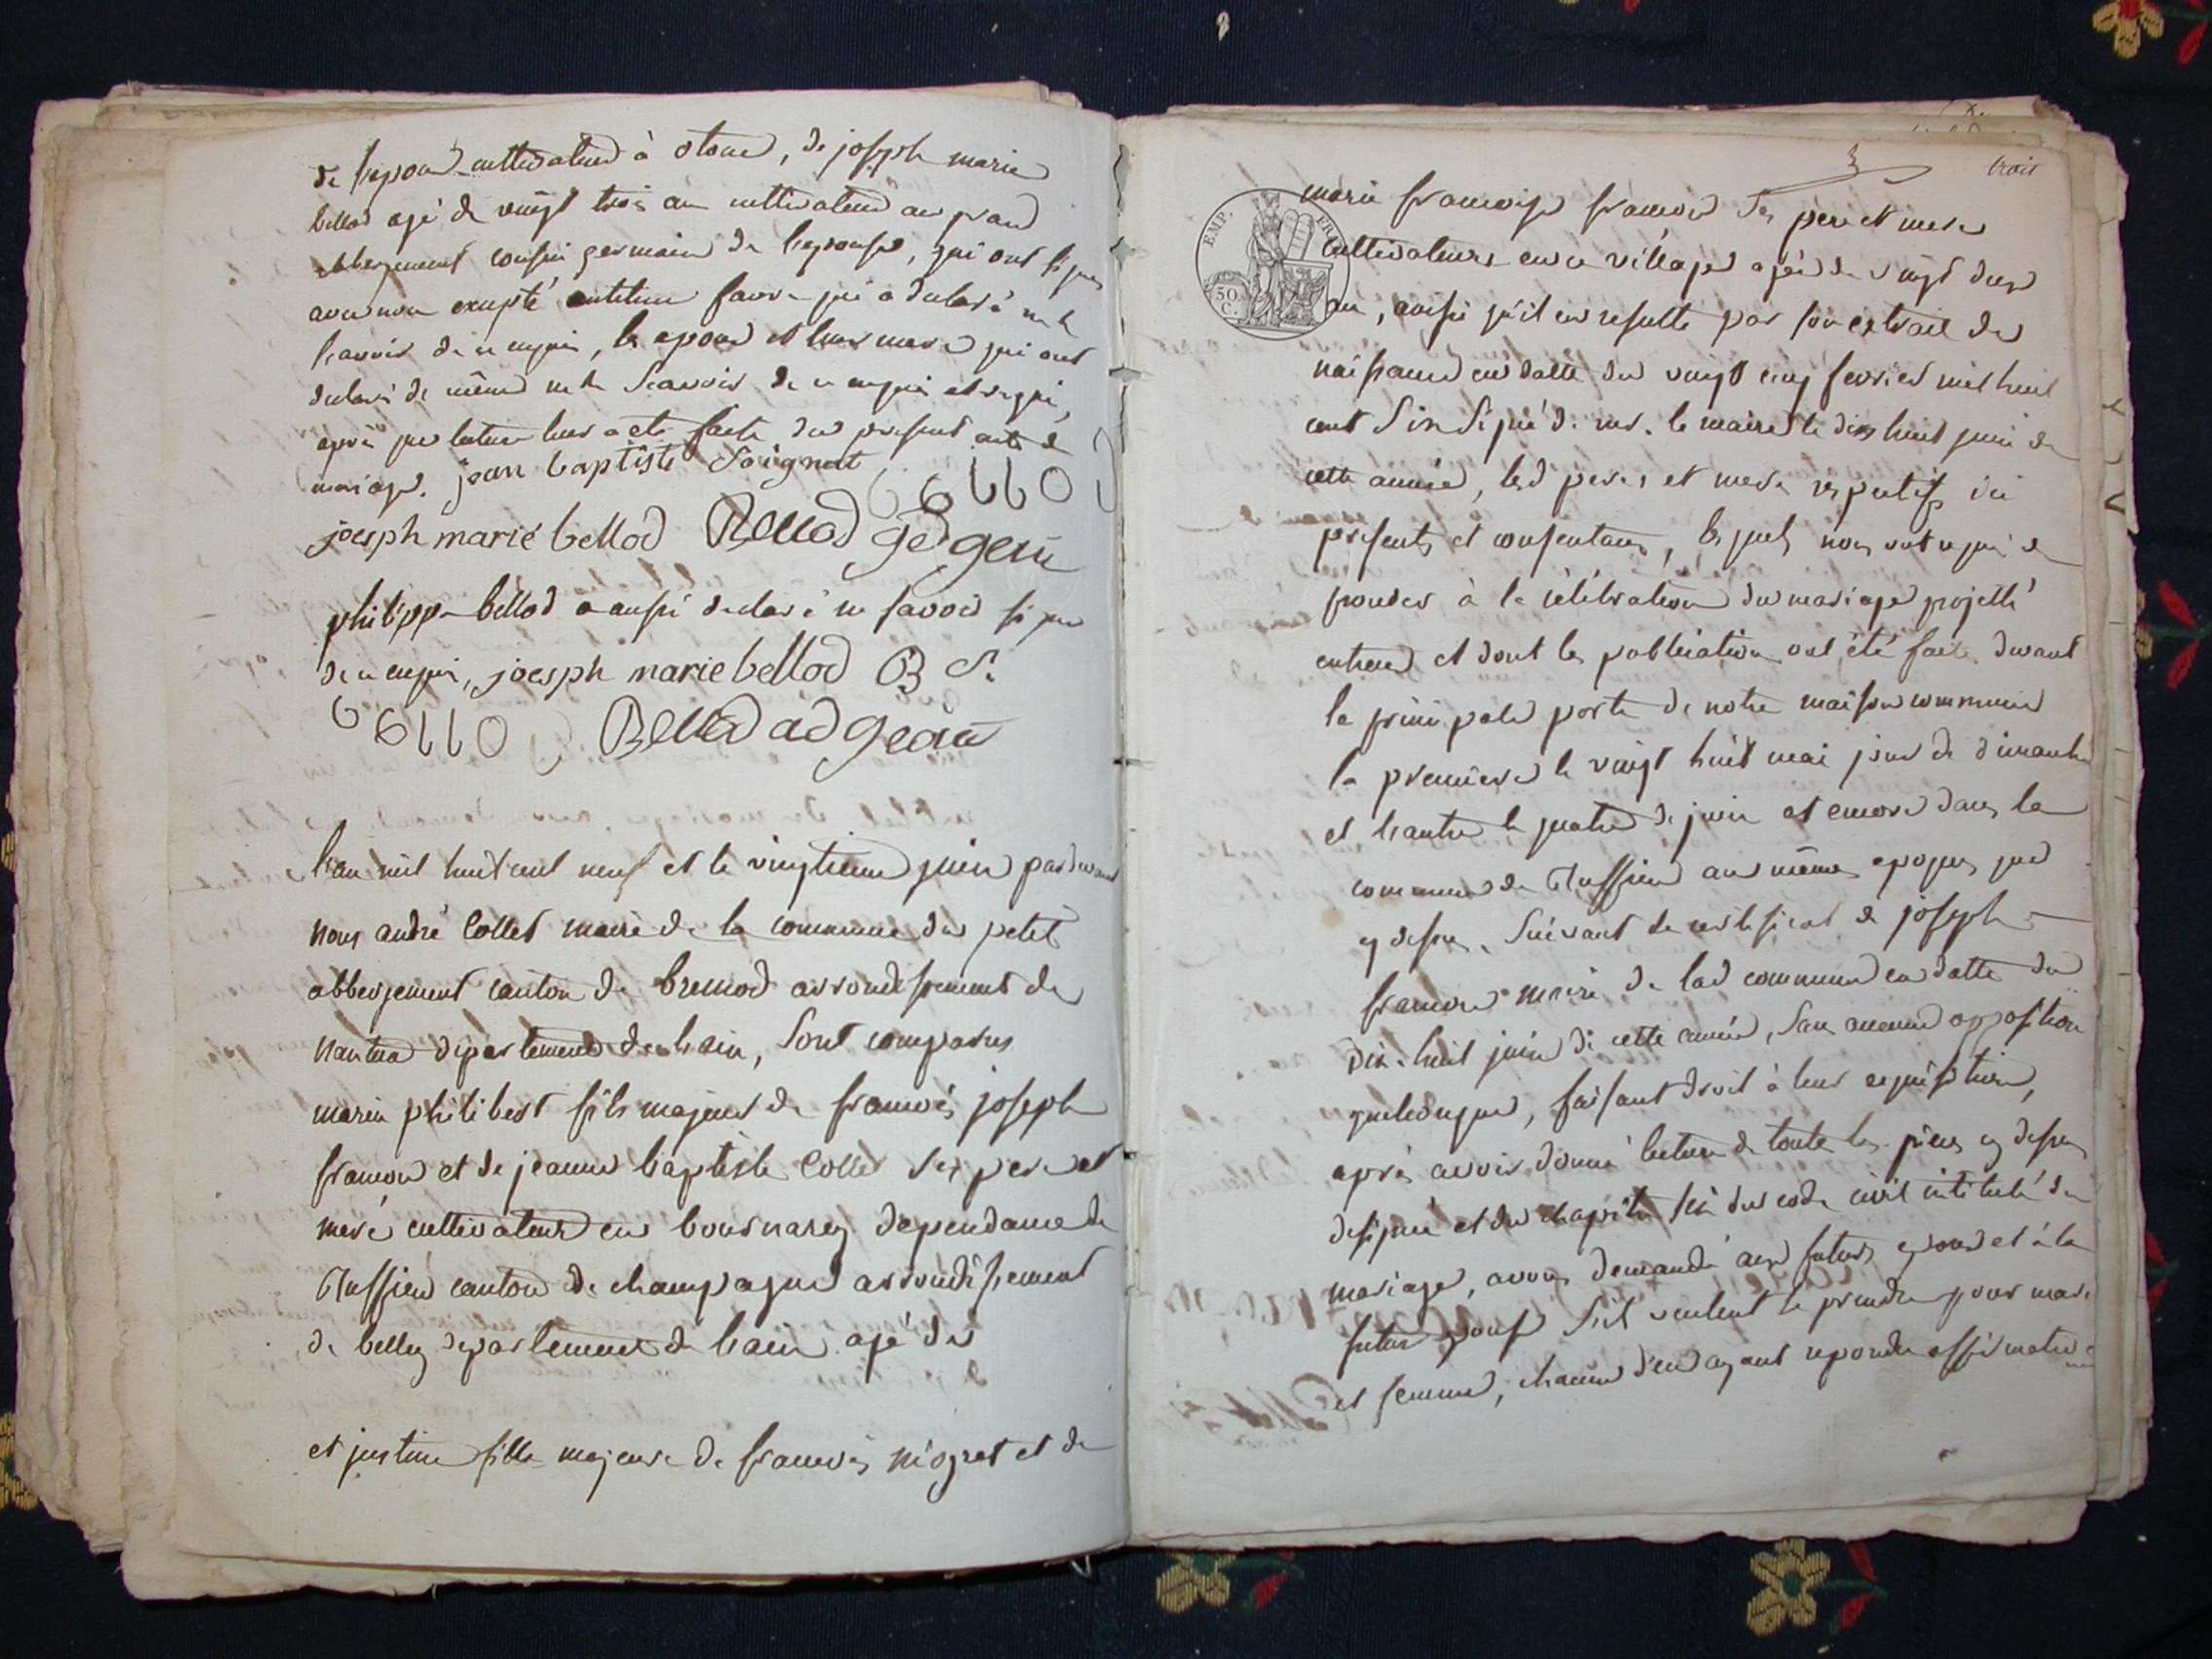 de l'epoux cultivateur à otone, de joseph marie
bellod agé de vingt trois an cultivateur au grand
abbergement cousin germain de l'epouse, qui ont signé
avec nous excepté antelme favre qui a declaré ne le
scavoir de ce enquis, les epoux et leurs meres qui ont
declaré de même ne le scavoir de ce enquis et requi,
aprés que lecture leur a eté faite du present acte de
mariage. jean baptiste Soignat
joesph marie bellod Bellod ad gean
philippe bellod a aussi declaré ne savoir signer
de ce enquis, joesph marie bellod B S.
Bellod ad gean
l'an mil huit cent neuf et le vingtieme juin pardevant
nous andré Collet maire de la commune du petit
abbergement canton de bremod arrondissement de
nantua departement de l'ain, sont comparus
marin philibert fils majeur de francois joseph
francon et de jeanne baptiste Collet ses pere et
mere cultivateur en bournarey dependance de
Ruffieu canton de champagne arrondissement
de belley departement de l'ain agé de
et justine fille majeure de francois niogret et de
3 trois
EMP. FRA
50 C.
marie francoise francon ses pere et mere
cultivateurs en ce village agée de vingt deux
an, ainsi qu'il en resulte par son extrait de
naissance en datte du vingt cinq fevrier mil huit
cent Six Signé de nous le maire le dix huit juin de
cette année, lesd peres et meres respectifs ici
presents et consentants, lesquels nous ont requis de
proceder à la célébration du mariage projetté
entreux et dont les publications ont été faites devant
la principale porte de notre maison commune
la premiere le vingt huit mai jour de dimanche
et l'autre le quatre de juin et encore dans la
commune de Ruffieu aux mêmes epoques que
cy dessus, suivant le certificat de joseph
francon maire de lad commune en datte du
dix-huit juin de cette année, sans aucune opposition
quelconque, faisant droit à leur requisition,
aprés avoir donné lecture de toute les pieces cy dessus
designé et du chapitre six du code civil intitulé du
mariage, avons demandé aux futurs epoux et à la
future epouse s'ils veulent se prendre pour mari
et femme, chacun d'eux ayant repondu affirmative